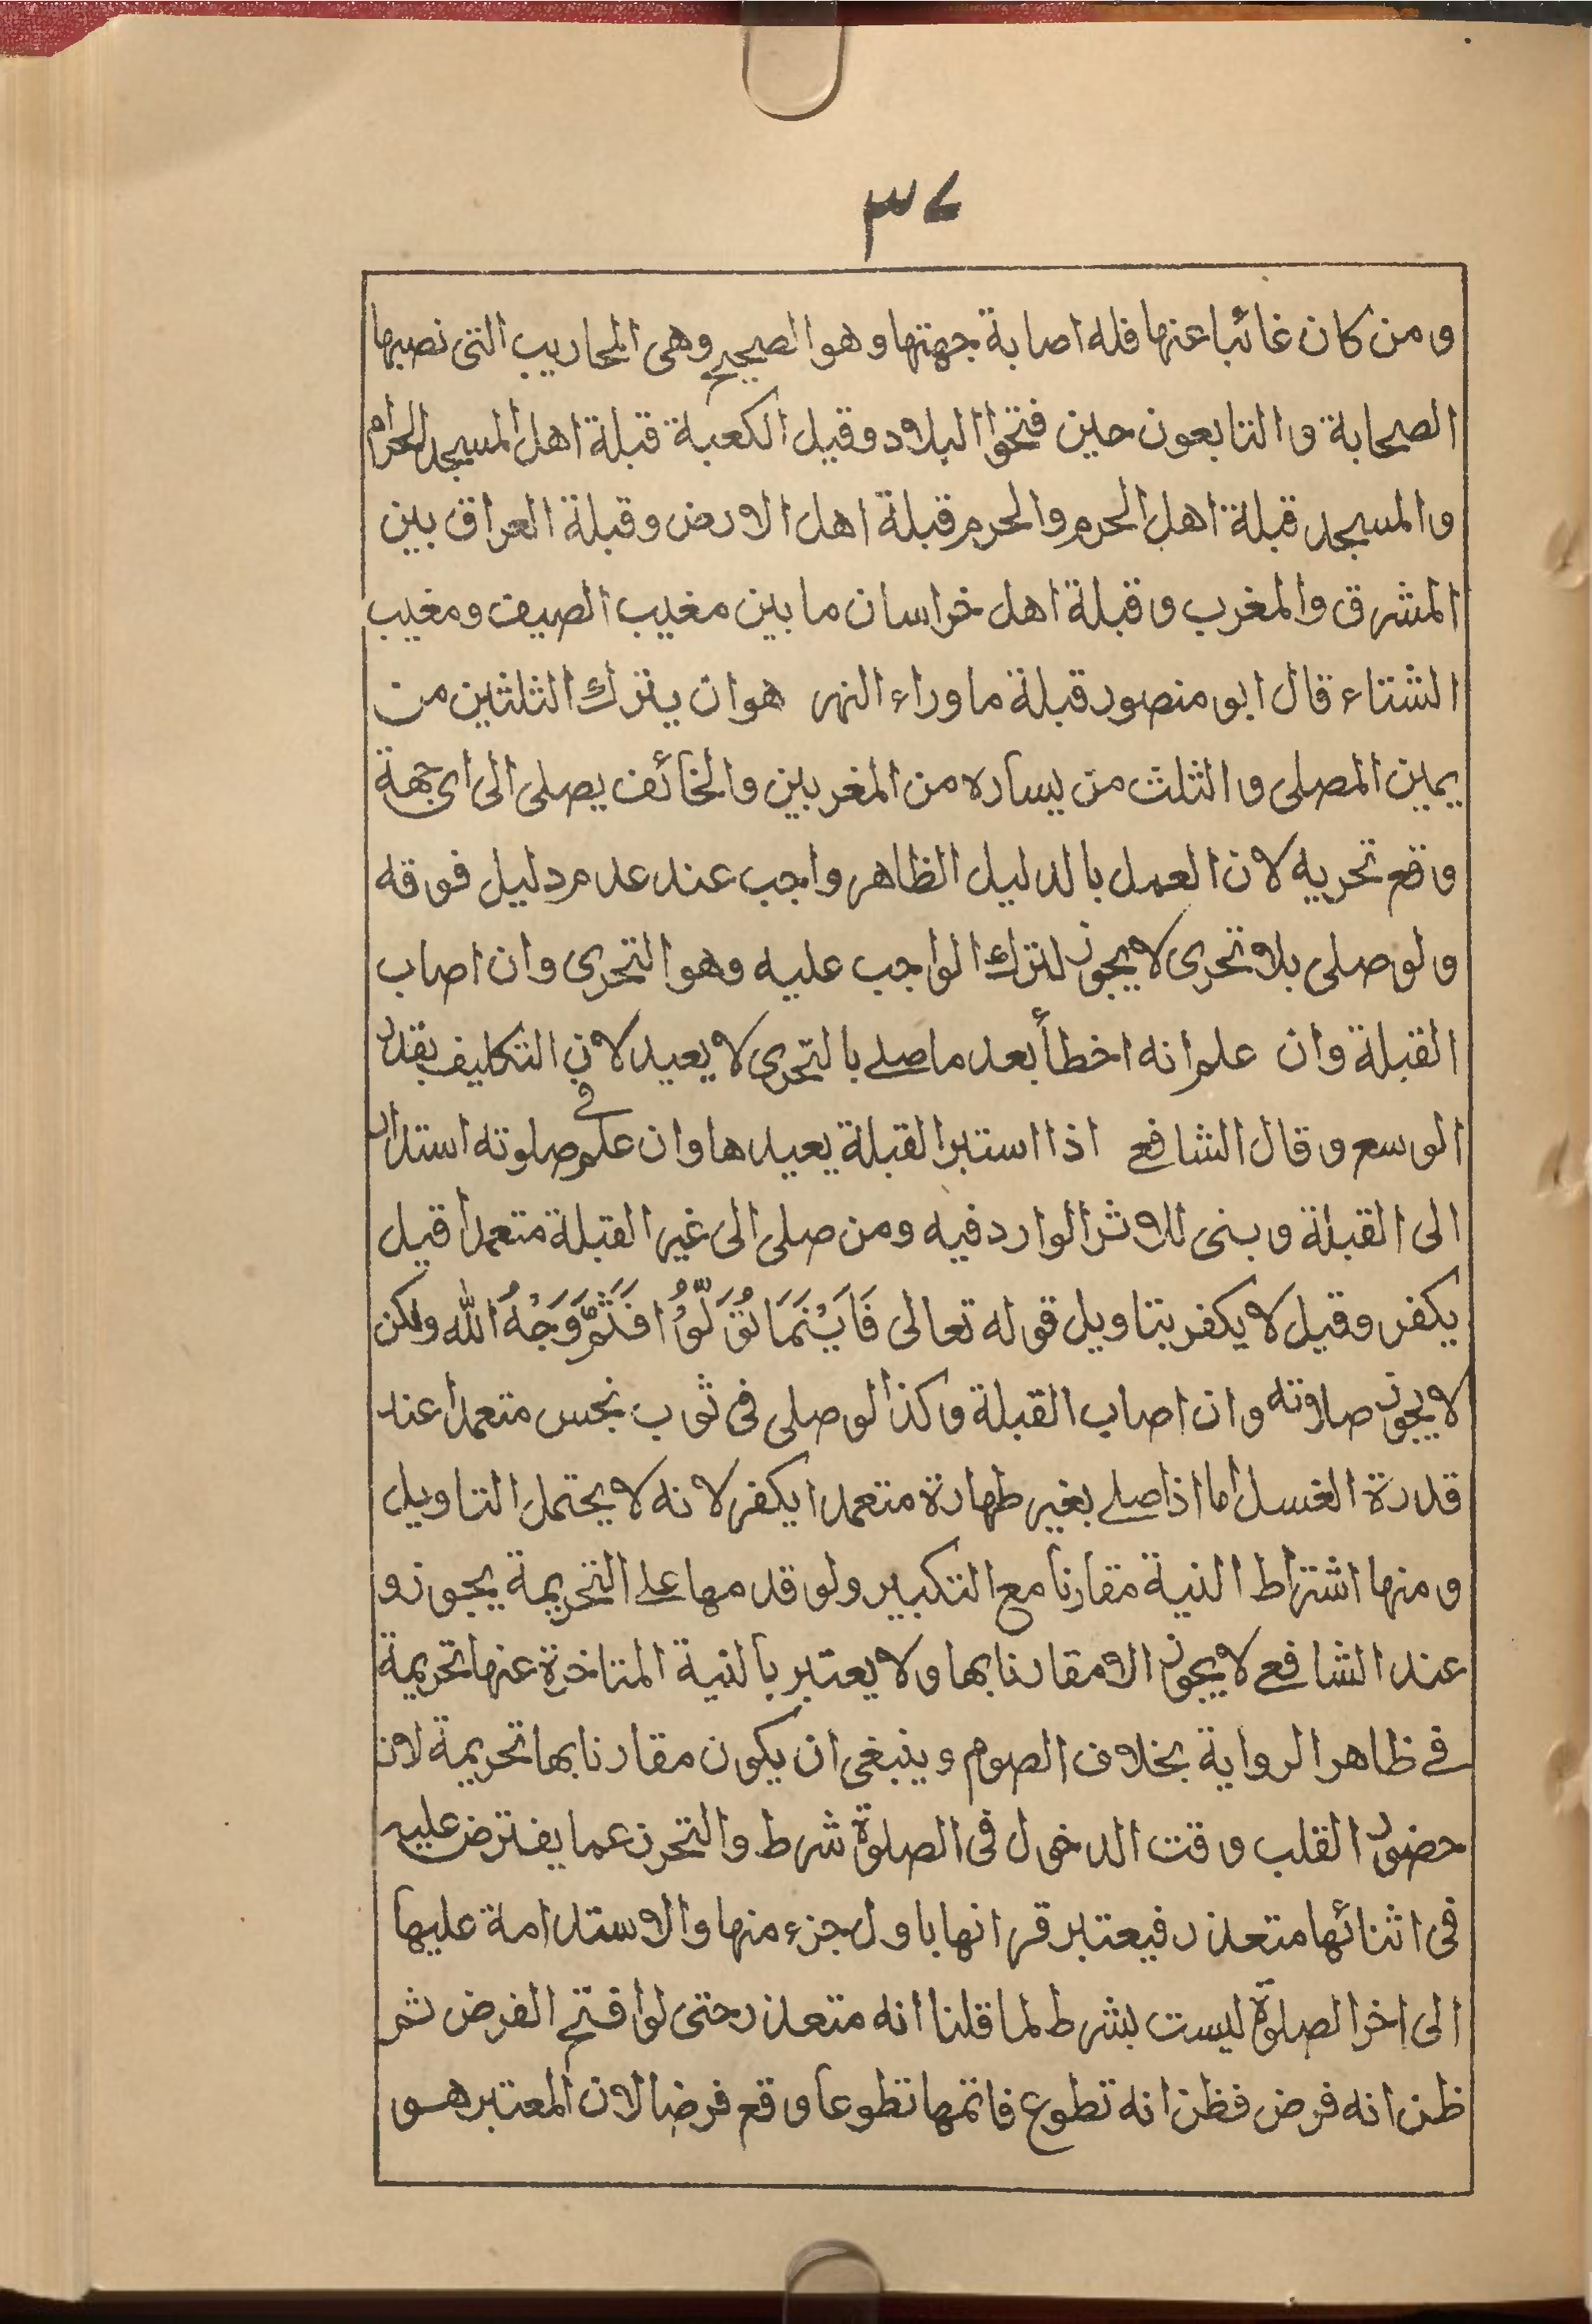 ٣٧
ومن كان غائبا عنها فله اصابة جهتها وهو الصحيح وهى المحاريب التى نصبها
الصحابة والتابعون حين فتحوا البلاد وقيل الكعبة قبلة اهل المسجد الحرام
والمسجد قبلة اهل الحرم والحرم قبلة اهل الارض وقبلة العراق بين
المشرق والمغرب وقبلة اهل خراسان ما بين مغيب الصيف ومغيب
الشتاء قال ابو منصور قبلة ما وراء النهر هو ان يترك الثلثين من
يمين المصلى والثلث من يساره من المغربين والخائف يصلى الى اى جهة
وقع تحريه لان العمل بالدليل الظاهر واجب عند عدم دليل فوقه
ولو صلى بلا تحرى لا يجوز لترك الواجب عليه وهو التحرى وان اصاب
القبلة وان علم انه اخطأ بعد ما صلے بالتحرى لا يعيد لان التكليف بقدر
الوسع وقال الشافعے اذا استبر القبلة يعيدها وان علم فى صلوته استدار
الى القبلة وبنى للاثر الوارد فيه ومن صلى الى غير القبلة متعمدا قيل
يكفر وقيل لا يكفر بتاويل قوله تعالى فَايْنَمَا تُوَلُّوُا فَثَمَّ وَجْهُ الله ولكن
لا يجوز صلاوته وان اصاب القبلة وكذا لو صلى فى ثوب نجس متعمدا عند
قدرة الغسل اما اذا صلے بغير طهارة متعمدا يكفر لانه لا يحتمل التاويل
ومنها اشتراط النية مقارنا مع التكبير ولو قدمها علے التحريمة يجوز و
عند الشافعے لا يجوز الا مقارنا بها ولا يعتبر بالنية المتاخرة عنها تحريمة
فے ظاهر الرواية بخلاف الصوم وينبغى ان يكون مقارنا بها تحريمة لان
حضور القلب وقت الدخول فى الصلوة شرط والتحرز عما يفترض عليه
فى اثنائها متعذر فيعتبر قرانها باول جزء منها والاستدامة عليها
الى اخر الصلوة ليست بشرط لما قلنا انه متعذر حتى لو افتتح الفرض ثم
ظن انه فرض فظن انه تطوع فاتمها تطوعا وقع فرضا لان المعتبر هو